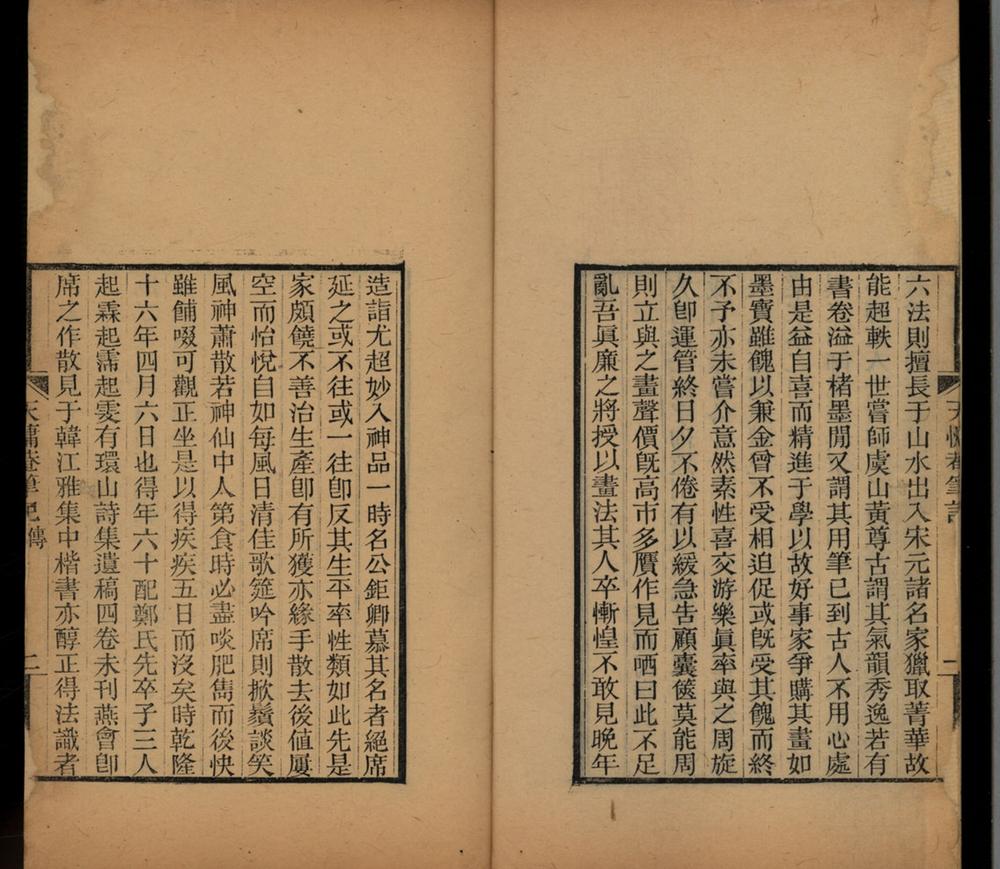 六法則擅長于山水出入宋元諸名家獵取菁華故
能超軼一世嘗師虞山黃尊古謂其氣韻秀逸若有
書卷溢于楮墨閒又謂其用筆已到古人不用心處
由是益自喜而精進于學以故好事家爭購其畫如
墨寶雖餽以兼金曾不受相迫促或旣受其餽而終
不予亦未嘗介意然素性喜交游樂眞率與之周旋
久卽運管終日夕不倦有以緩急告顧囊篋莫能周
則立與之畫聲價旣高市多贗作見而哂曰此不足
亂吾眞廉之將授以畫法其人卒慚惶不敢見晚年
造詣尤超妙入神品一時名公鉅卿慕其名者絕席
延之或不往或一往卽反其生平率性類如此先是
家頗饒不善治生產卽有所獲亦緣手散去後値屢
空而怡悅自如每風日清佳歌筵吟席則掀鬚談笑
風神蕭散若神仙中人第食時必盡啖肥雋而後快
雖餔啜可觀正坐是以得疾疾五日而沒矣時乾隆
十六年四月六日也得年六十配鄭氏先卒子三人
起霖起霈起雯有環山詩集遺稿四卷未刊燕會卽
席之作散見于韓江雅集中楷書亦醇正得法識者
天慵菴筆記 傳
二